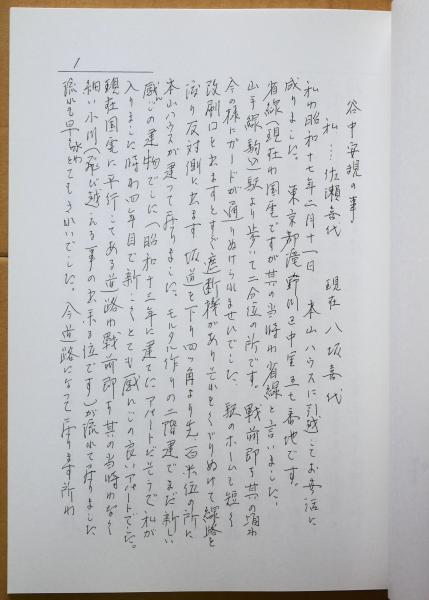 1
谷中安規の事
私…佐瀬喜代　現在　八坂喜代
私わ昭和十七年二月十一日　本山ハウスに引越してお世話に
成りました。　東京都滝野川区中里三七番地です。
省線(現在わ国電ですが其の当時わ省線と言いました。
山手線駒込)駅より歩いて二分位の所です。戦前即ち其の頃わ
今の様にガードが通りぬけられませんでした。駅のホームも短く
改札口を出ますとすぐ遮断機がありそれをくぐりぬけて線路を
渡り反対側に出ます　坂道を下り四つ角より先百米位の所に
本山ハウスが建って居りました、モルタル作りの二階建でまだ新しい
感じの建物でした(昭和十三年に建てたアパートだそうで私が
入りました時わ四年目で新しくとても感じの良いアパートでした。
現在国電に平行してある道路わ戦前即ち其の当時わなく
細い小川(飛び越える事の出来る位です)が流れて居りました
流れも早く水わとてもきれいでした。今道路になって居ります所わ